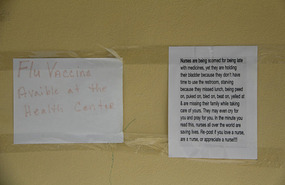 Flu Vaccine
Avalible at the
Health Center
Nurses are being scorned for being late
with medicines, yet they are holding
their bladder because they don't have
time to use the restroom, starving
because they missed lunch, being peed
on, puked on, bled on, beat on, yelled at
& are missing their family while taking
care of yours. They may even cry for
you and pray for you. In the minute you
read this, nurses all over the world are
saving lives. Re-post if you love a nurse,
are a nurse, or appreciate a nurse!!!!